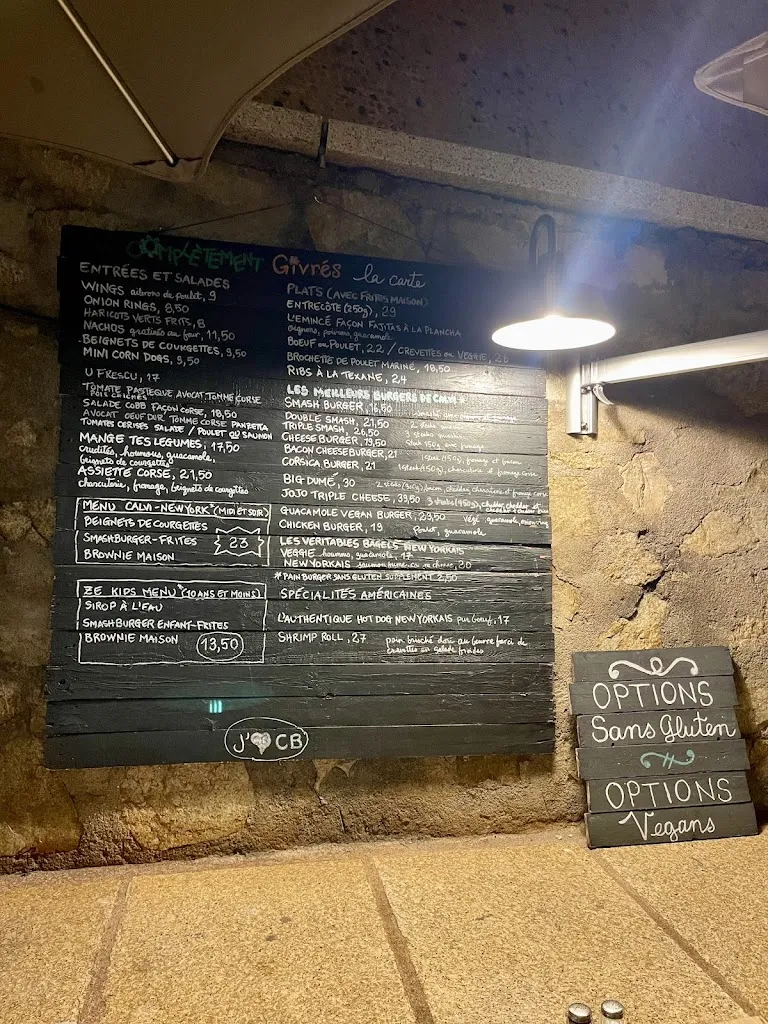 COMPLÈTEMENT Givrés la carte
ENTRÉES ET SALADES
WINGS ailerons de poulet, 9
ONION RINGS, 8,50
HARICOTS VERTS FRITS, 8
NACHOS gratinés au four, 11,50
BEIGNETS DE COURGETTES, 9,50
MINI CORN DOGS, 9,50
U FRESCU, 17
TOMATE PASTEQUE AVOCAT TOMME CORSE
POIS CHICHES
SALADE COBB FAÇON CORSE, 18,50
AVOCAT OEUF DUR TOMME CORSE PANZETTA
TOMATES CERISES SALADE / POULET OU SAUMON
MANGE TES LEGUMES, 17,50
crudités, houmous, guacamole,
beignets de courgettes
ASSIETTE CORSE, 21,50
charcuterie, fromage, beignets de courgettes
MENU CALVI-NEW YORK (MIDI ET SOIR)
BEIGNETS DE COURGETTES
SMASHBURGER-FRITES
23
BROWNIE MAISON
ZE KIDS MENU (10 ANS ET MOINS)
SIROP À L'EAU
SMASHBURGER ENFANT-FRITES
BROWNIE MAISON
13,50
PLATS (AVEC FRITES MAISON)
ENTRECÔTE (250g), 29
L'EMINCÉ FAÇON FAJITAS À LA PLANCHA
oignons, poivrons, guacamole
BOEUF OU POULET, 22 / CREVETTES OU VEGGIE, 26
BROCHETTE DE POULET MARINÉ, 18,50
RIBS À LA TEXANE, 24
LES MEILLEURS BURGERS DE CALVI *
SMASH BURGER, 16,50
DOUBLE SMASH, 21,50 2 steaks
TRIPLE SMASH, 26,50 3 steaks
CHEESE BURGER, 19,50 steak 150g
BACON CHEESEBURGER, 21
CORSICA BURGER, 21 1 steak (150g), charcuterie et fromage corse
BIG DUMÈ, 30
JOJO TRIPLE CHEESE, 39,50 3 steaks (450g),
GUACAMOLE VEGAN BURGER, 23,50
CHICKEN BURGER, 19 Poulet, guacamole
LES VERITABLES BAGELS NEW YORKAIS
VEGGIE houmous, guacamole, 17
NEW YORKAIS saumon fumé, cream cheese, 20
*PAIN BURGER SANS GLUTEN SUPPLEMENT 2,50
SPÉCIALITÉS AMÉRICAINES
L'AUTHENTIQUE HOT DOG NEW YORKAIS pur boeuf, 17
SHRIMP ROLL, 27 pain brioché doré au beurre farci de
crevettes en salade froides
J' CB
OPTIONS
Sans Gluten
OPTIONS
Vegans